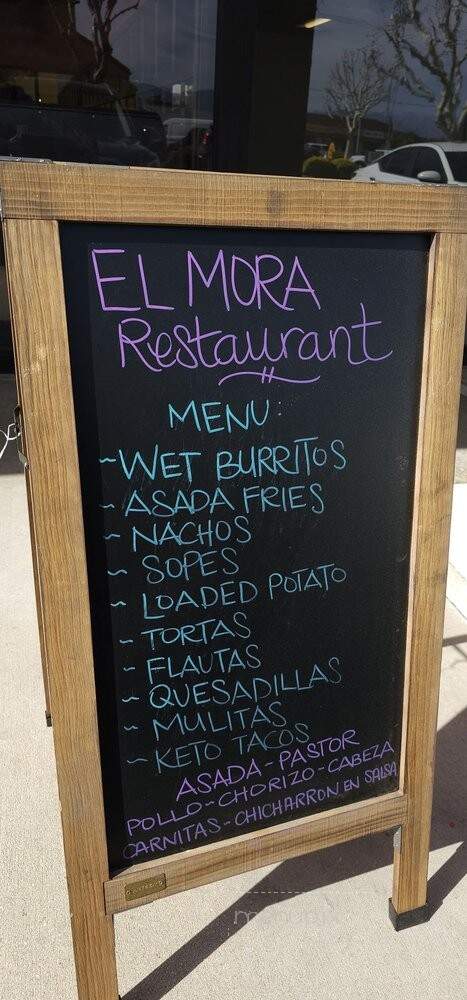 EL MORA
Restaurant
MENU:
~WET BURRITOS
~ASADA FRIES
~NACHOS
~SOPES
~LOADED POTATO
~TORTAS
~FLAUTAS
~QUESADILLAS
~MULITAS
~KETO TACOS
ASADA-PASTOR
POLLO-CHORIZO-CABEZA
CARNITAS-CHICHARRON EN SALSA